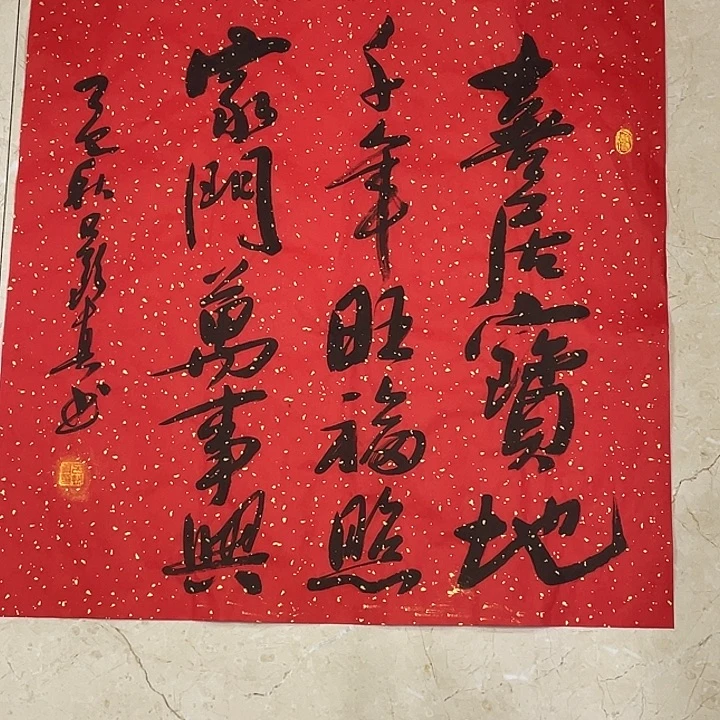 喜居寶地
千年旺福照
家門萬事興
乙巳秋